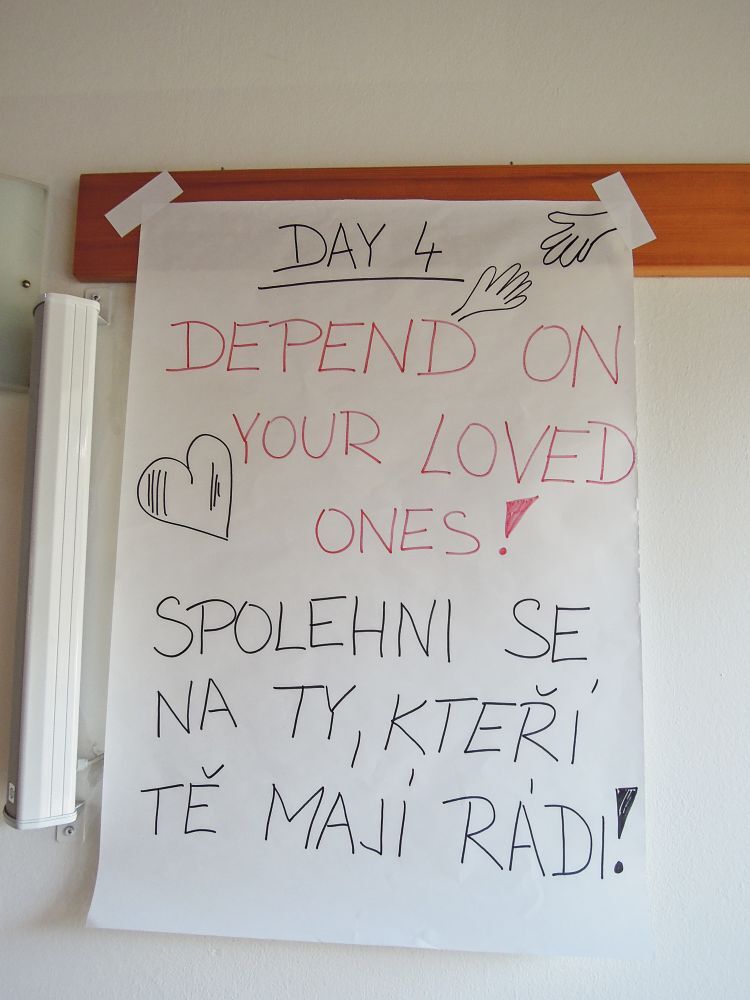 DAY 4
DEPEND ON
YOUR LOVED
ONES!
SPOLEHNI SE
NA TY, KTEŘÍ
TĚ MAJÍ RÁDI!